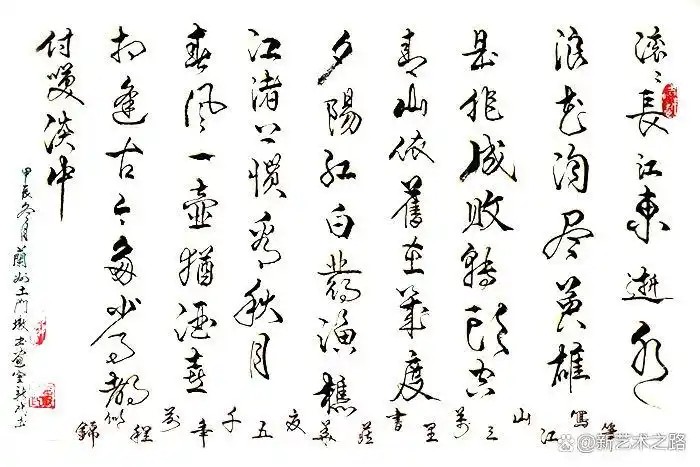 滚〻長江東逝水
浪花淘尽英雄
是非成败轉頭空
青山依舊在幾度
夕陽红白髮漁樵
江渚上惯看秋月
春風一壺酒喜
相逢古今多少事都
付笑谈中
甲辰冬月蘭州土門墩
筆寫江山三萬里書華夏五千年程似錦
@新艺术之路